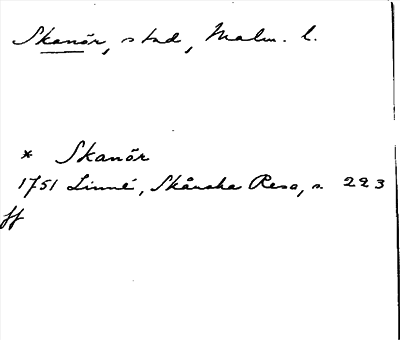 Skanör, stad, Malm. l.
* Skanör
1751 Linné, Skånska Resa, s. 223
ff